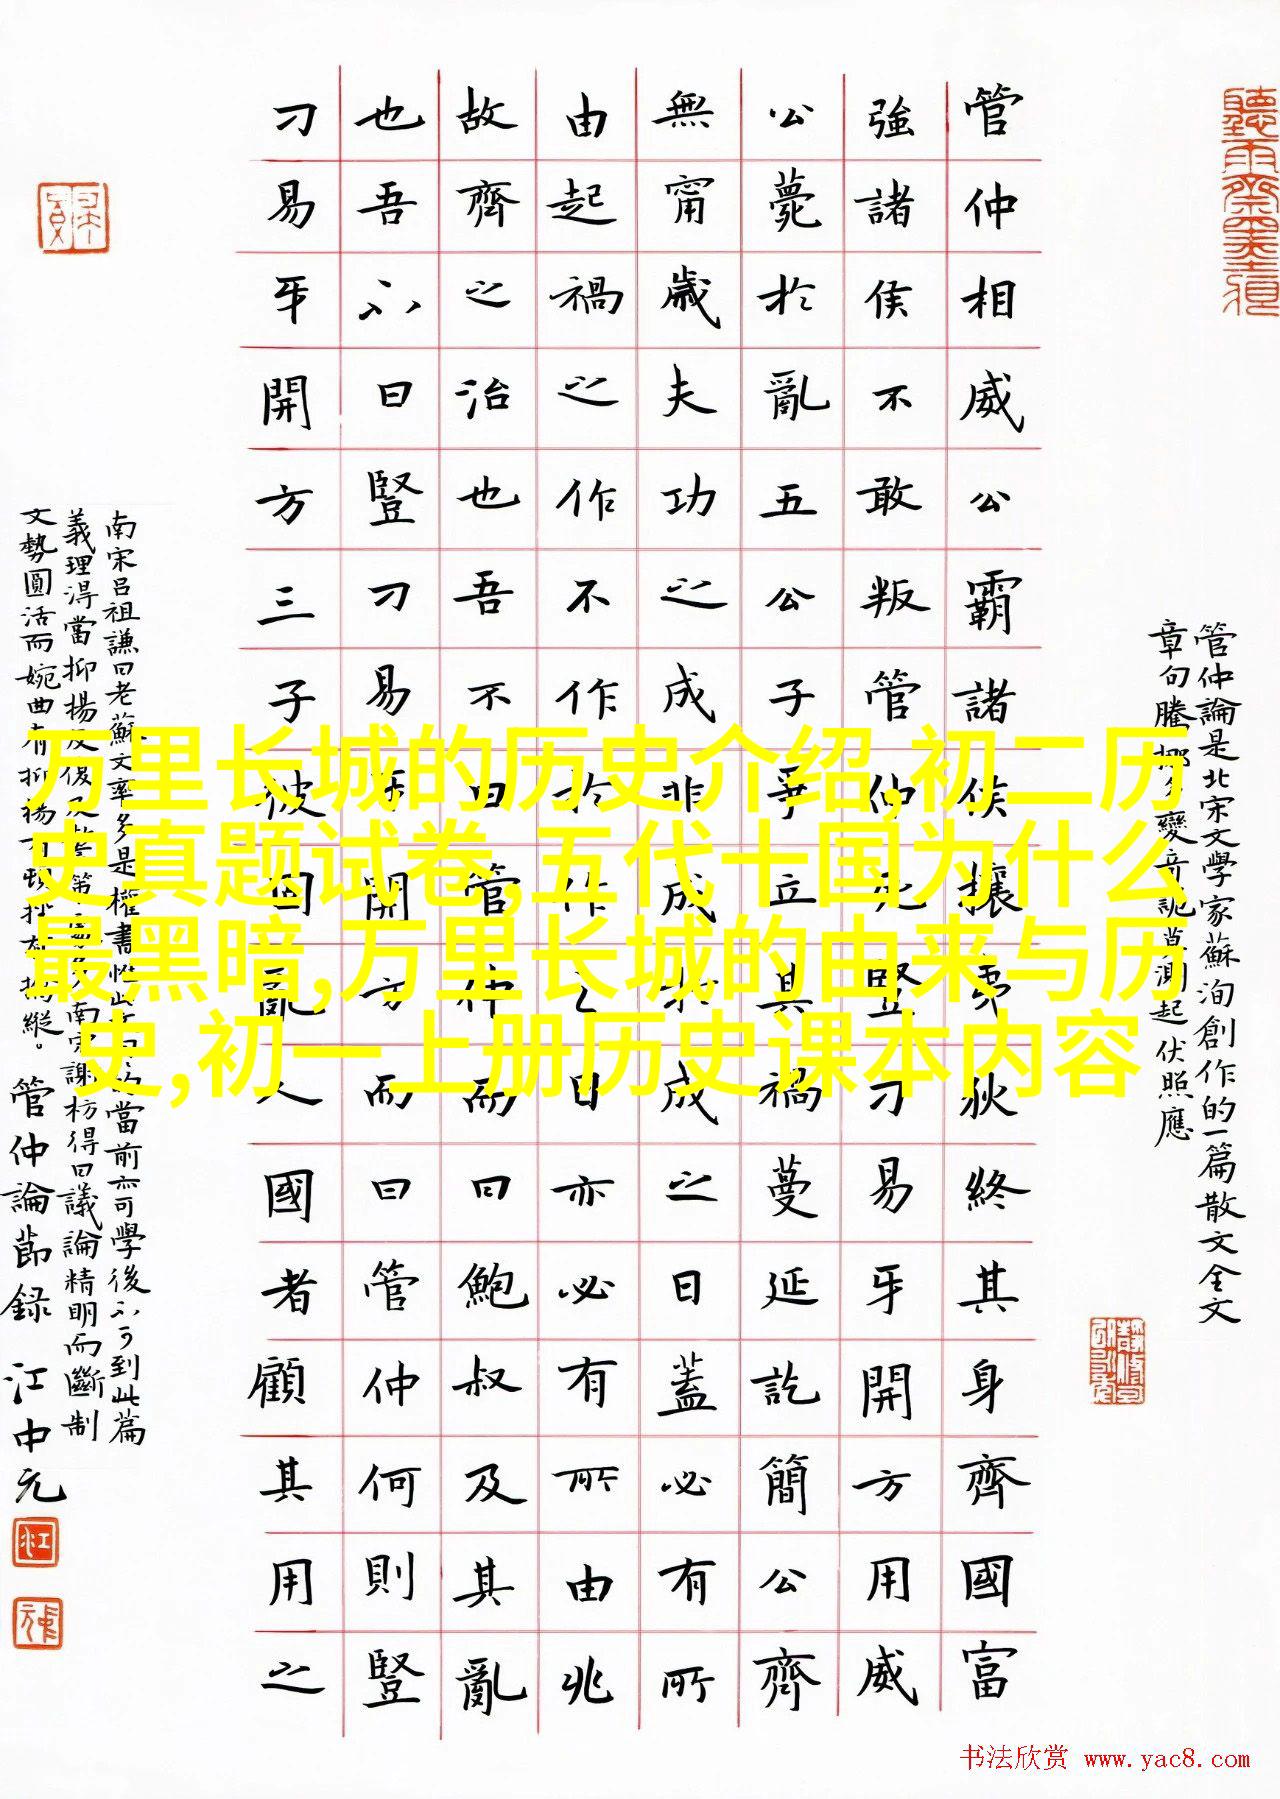 管仲相威公霸諸侯攘夷狄終其身齊國富
強諸侯不敢叛管仲死豎刁易牙開方用威
公薨於亂五公子爭立其禍蔓延訖簡公齊
無甯歲夫功之成非成於成之日蓋必有所
由起禍之作不作於作之日亦必有所由兆
故齊之治也吾不曰管仲而曰鮑叔及其亂
也吾不曰豎刁易牙開方而曰管仲何則豎
刁易牙開方三子彼固亂人國者顧其用之
管仲論是北宋文學家蘇洵創作的一篇散文全文
章句騰挪多變奇詭莫測起伏照應
南宋吕祖謙曰老蘇文率多是權書惟此當前亦可學後不可到此篇
義理淂當抑揚反復及警策處多南宋謝枋得曰議論精明而斷制
文勢圓活而婉曲有抑揚有頓挫有擒縱。
管仲論節録 江中元
江
万里长城的历史介绍,初二历
史真题试卷,五代十国为什么
最黑暗,万里长城的由来与历
史,初一上册历史课本内容
书法欣赏 www.yac8.com